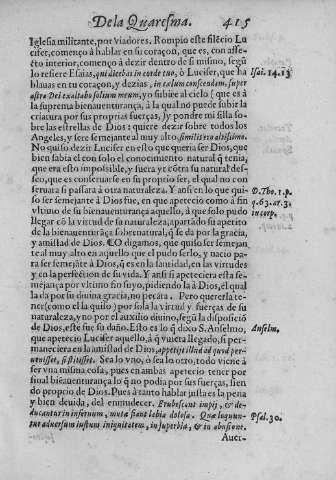 De la Quaresma. 415
Iglesia militante, por Viadores. Rompio este silẽcio Lu
cifer, començò à hablar en su coraçon, que es, con affe-
cto interior, començò à dezir dentro de si mismo, segũ
lo refiere Esaias, qui dicebas in corde tuo, ò Lucifer, que ha
blauas en tu coraçon, y dezias, in cœlum conscendam, super
astra Dei exaltabo solium meum, yo subirè al cielo (que es à
la suprema bienauenturança, à la qual no puede subir la
criatura por sus proprias fuerças, )y pondre mi silla so-
bre las estrellas de Dios: quiere dezir sobre todos los
Angeles, y sere semejante al muy alto, similis ero altissimo.
No quiso dezir Lucifer en esto que queria ser Dios, que
bien sabia el con solo el conocimiento natural q̃ tenia,
que era esto impossible, y fuera ya cõtra su natural des-
seo, que es conseruarse en su proprio ser, el qual no con
seruara si passara à otra naturaleza. Y ansi en lo que qui-
so ser semejante à Dios fue, en que apetecio como à fin
vltimo de su bienauenturança aquello, à que solo pudo
llegar cõ la virtud de su naturaleza, apartado su apetito
de la bienauenturãça sobrenatural, q̃ se da por la gracia,
y amistad de Dios. O digamos, que quiso ser semejan
te al muy alto en aquello que el pudo serlo, y nacio pa-
ra ser semejãte à Dios, q̃ es en la santidad, en las virtudes
y en la perfection de su vida. Y ansi si apeteciera esta se-
mejança por vltimo fin suyo, pidiendola à Dios, el qual
la da por su diuina gracia, no pecára. Pero quererla te-
ner (como el la quiso) por sola la virtud y fuerças de su
naturaleza, y no por el auxilio diuino, segũ la disposiciõ
de Dios, este fue su daño. Esto es lo q̃ dixo S. Anselmo,
que apetecio Lucifer aquello, à q̃ uuiera llegado, si per-
maneciera en la amistad de Dios, appetijt illud ad quod per-
uenisset, si stetisset. Sea lo vno, ò sea lo otro, todo viene à
ser vna misma cosa, pues en ambas apetecio tener por
final bienauenturança lo q̃ no podia por sus fuerças, sien
do proprio de Dios. Pues à tanto hablar justa es la pena
y bien deuida, del enmudecer. Erubescant impij, & de-
ducantur in infernum, muta fiant labia dolosa. Quæ loquun-
tur aduersum iustum iniquitatem, in superbia, & in abusione.
Auer-
Isai. 14.13
D. Tho. 1. p.
q. 63. ar. 3.
in corp.
Anselm.
Psal. 30.